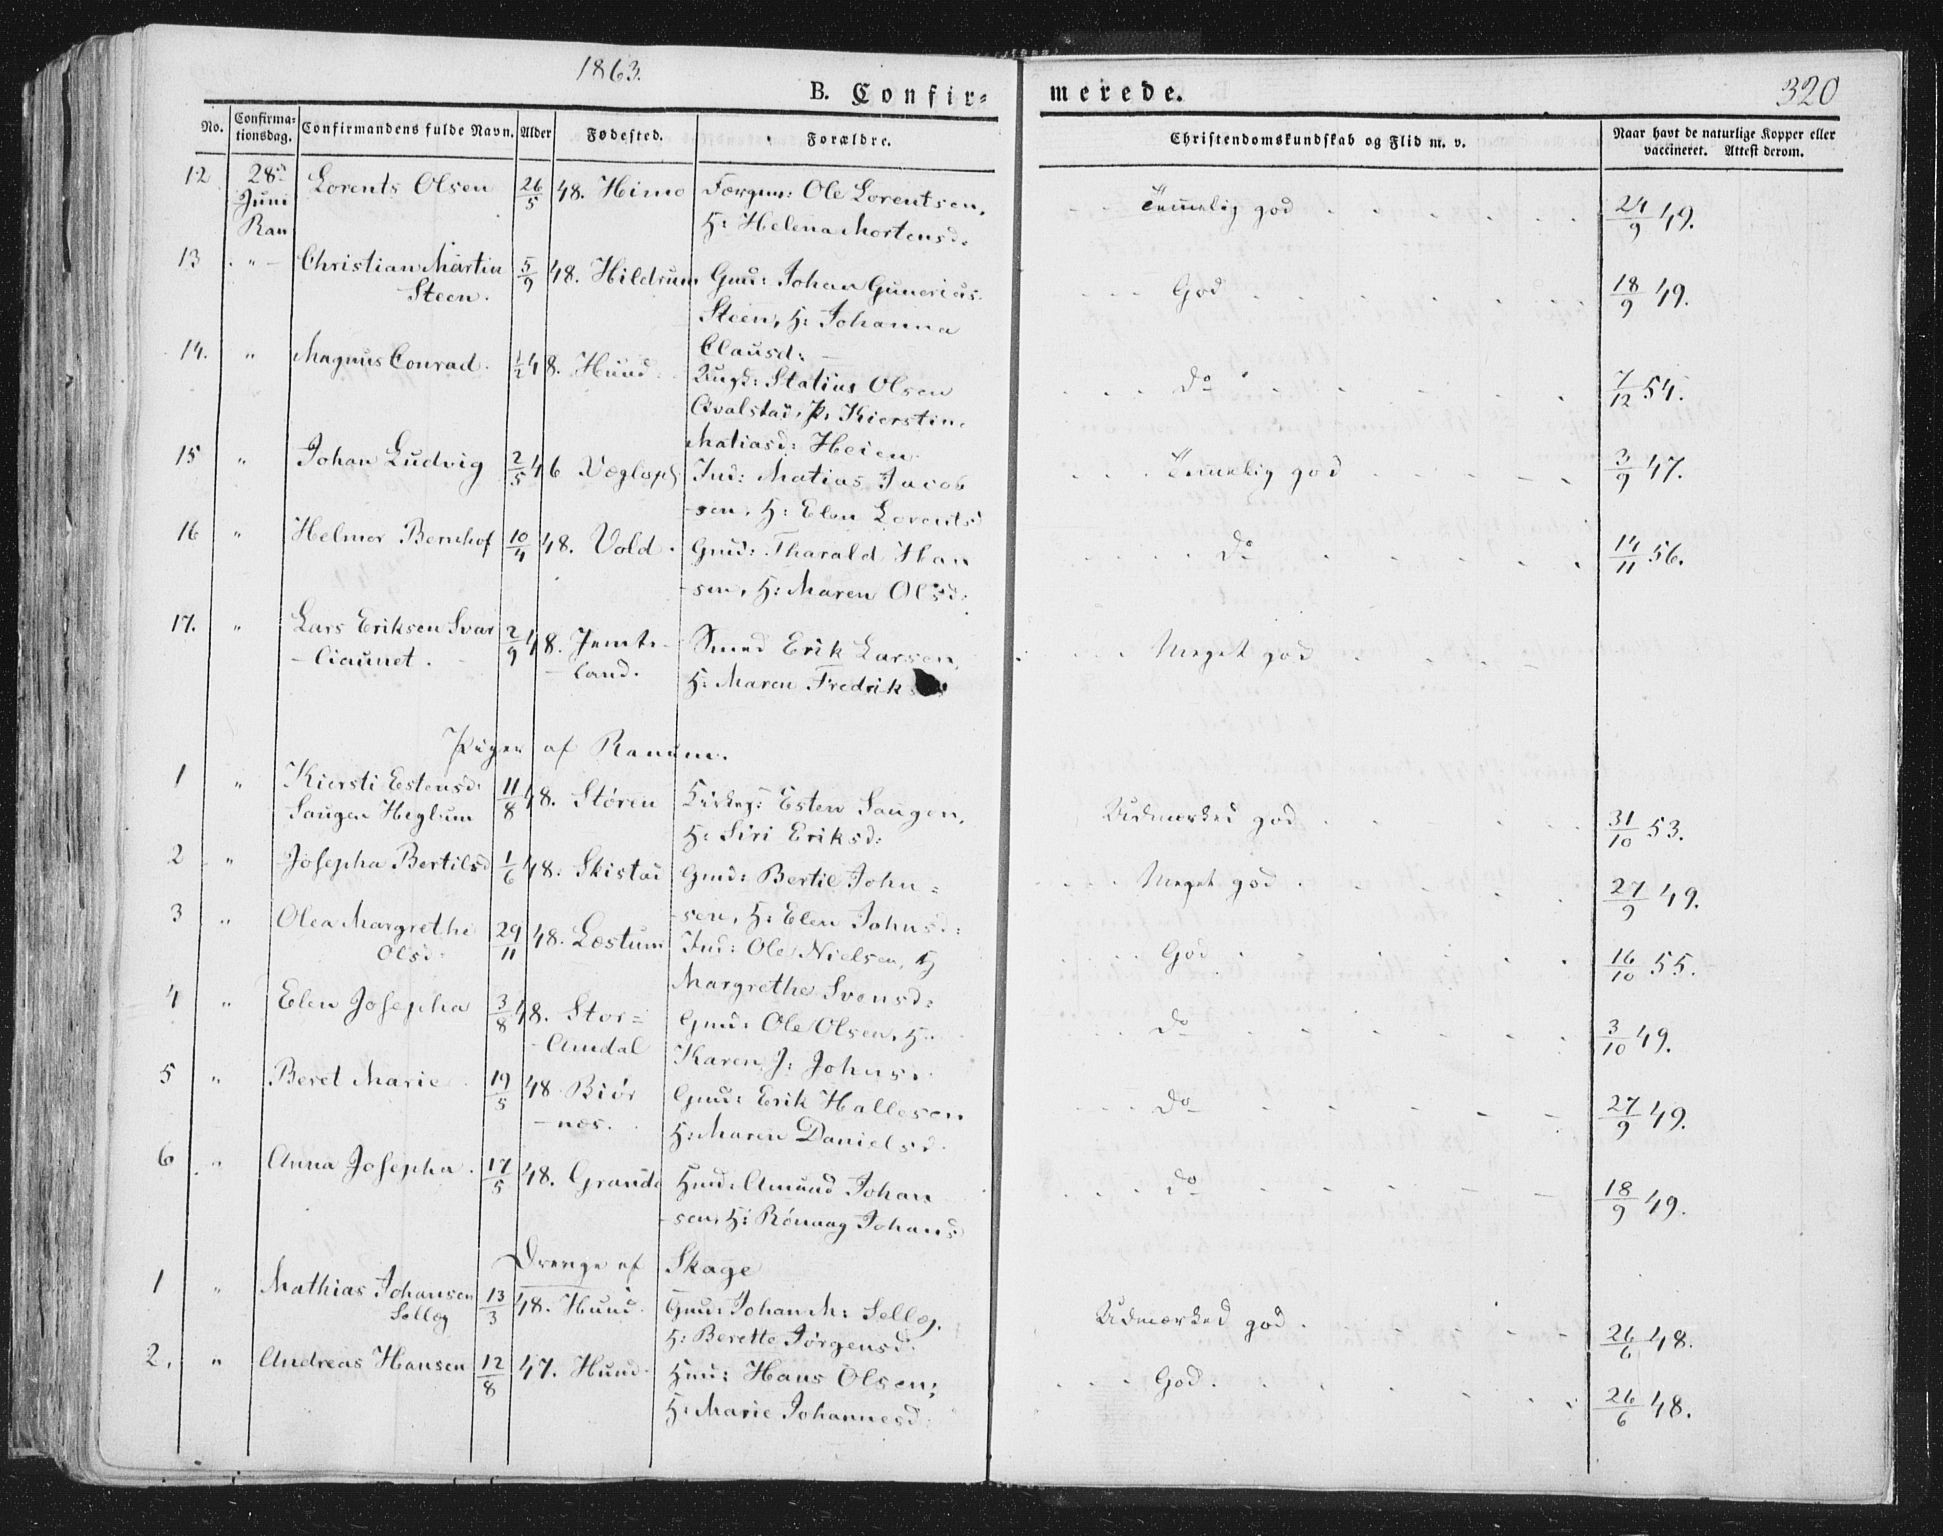 1863.
B. Confir= merede.
320
No. Confirma= tionsdag. Confirmandens fulde Navn. Alder Fødested. Forældre. Christendomskundskab og Flid m. v. Naar havt de naturlige Kopper eller vaccineret. Attest derom.
12 28de Lorents Olsen 26/5 48. Himo Ole Lorentsen, Temmelig god 24/9 49.
Juni H: Helena Mortensd:
Ran
13 " Christian Martin 5/9 48. Hildrum Gmd: Johan Gunerius God 18/9 49.
Steen. Steen, H: Johanna
Clausd:
14. " Magnus Conrad. 1/2 48. Hund. Ungk: Statius Olsen do 7/12 54.
Qvalstad, P. Kierstin
Matiasd: Heien.
15 " Johan Ludvig 2/5 46 Ind: Matias Jacob Temmelig god 3/9 47.
-sen, H: Elen Lorentsd
16 " Helmer Bernhof 10/4 48. Vold. Gmd: Tharald Han do 14/11 56.
-sen, H: Maren Olsd:
17. " Lars Eriksen Svar 2/9 48. Jemt- Smed Erik Larsen, Meget god
-liaunet. -land. H: Maren Fredriks
Piger af Ranum.
1 " Kiersti Estensd: 11/8 48. Støren Esten Saugen, Udmærked god 31/10 53.
Saugen Heglum H: Siri Eriksd:
2 " Josepha Bertilsd 1/6 48. Skistad Gmd: Bertil John= Meget god 27/9 49.
-sen, H: Elen Johnsd:
3 " Olea Margrethe 29/11 48. Læstum Ind: Ole Nielsen, H God 16/10 55.
Olsd: Margrethe Svensd:
4 " Elen Josepha 3/8 48. Stor= Gmd: Ole Olsen, H: do 3/10 49.
-Amdal Karen J: Johns.
5 " Beret Marie 19/5 48 Biør Gmd: Erik Hallesen do 27/9 49.
-nes. H: Maren Danielsd.
6 " Anna Josepha. 17/5 48. Grande Hmd: Amund Johan do 18/9 49.
-sen, H: Rønnaug Johansd
Drenge af Skage
1 " Mathias Johansen 13/3 48. Hund. Gmd: Johan M: Selløg. Udmærked god 26/6 48.
Selløg H: Berette Jørgensd.
2. " Andreas Hansen 12/8 47. Hund. Hmd: Hans Olsen; God. 26/6 48.
H: Marie Johannesd: